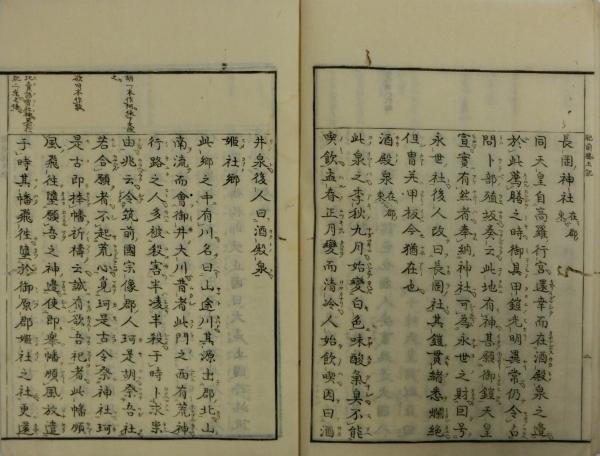 肥前風土記
長岡神社 在郡東
同天皇自高羅行宮還幸而在酒殿泉之邊
於此薦膳之時御具甲鎧光明異常仍令占
問卜部殖坂奏云此地有神甚願御鎧天皇
宣實有然者奉納神社可為永世之財因号
永世社後人改曰長岡社其鎧貫緒悉爛絶
但冑并甲板今猶在也
酒殿泉 在郡東
此泉之季秋九月始變白色味酸氣臭不能
喫飲孟春正月變而清冷人始飲喫因曰酒
井泉後人曰酒殿泉
姫社郷
此郷之中有川名曰山途川其源出郡北山
南流而會御井大川昔者此門之西有荒神
行路之人多被殺害半凌半殺于時卜求祟
由兆云令筑前國宗像郡人珂是胡祭吾社
若合願者不起荒心覓珂是古令祭神社珂
是古即捧幡祈禱云誠有欲吾祀者此幡順
風飛往墮願吾之神邊便即擧幡順風放遣
于時其幡飛往墮於御原郡姫社之社更還